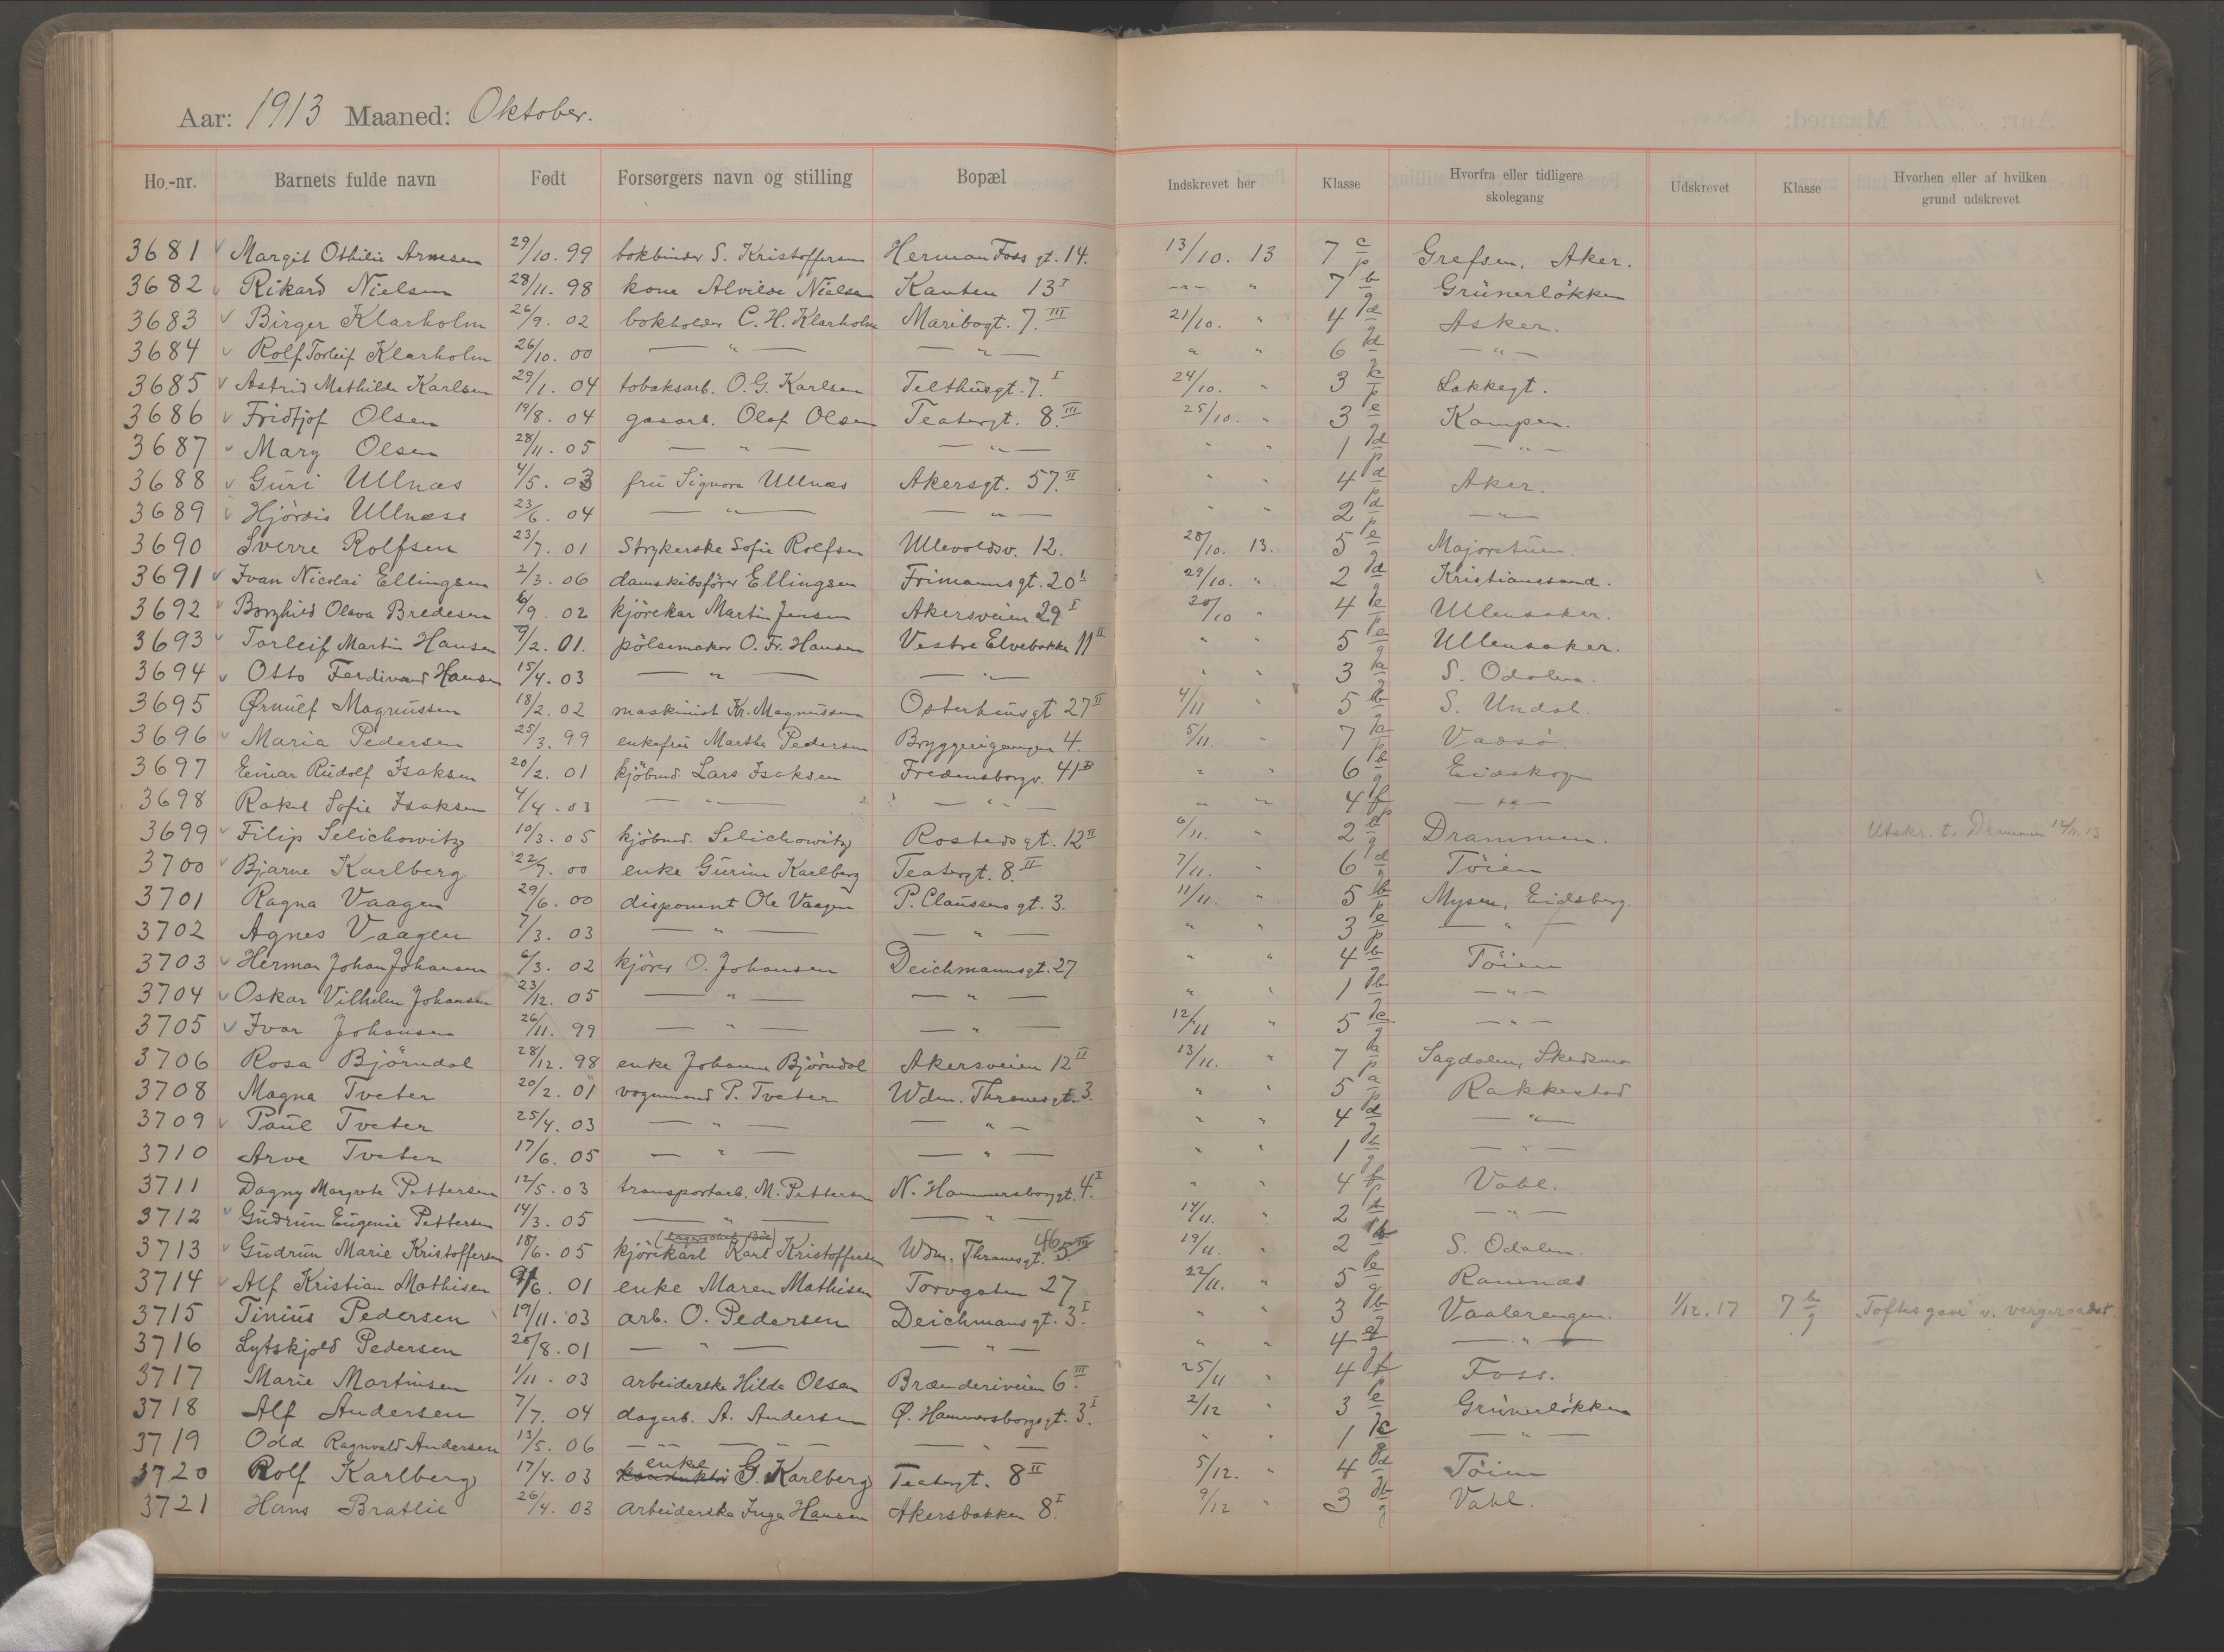 Aar: 1913 Maaned: Oktober.
Ho.-nr. Barnets fulde navn Født Forsørgers navn og stilling Bopæl Indskrevet her Klasse Hvorfra eller tidligere skolegang Udskrevet Klasse Hvorhen eller af hvilken grund udskrevet
3681 Margit Othilie Arnesen 29/10. 99 bokbinder S. Kristoffersen Herman Foss gt. 14. 13/10. 13 7 c/p Grefsen, Aker.
3682 Rikard Nielsen 28/11. 98 kone Alvilde Nielsen Kanten 13 I -"- " 7 b/g Grünerløkken
3683 Birger Klarholm 26/9. 02 bokholder C. H. Klarholm Maribogt. 7. III 21/10. " 4 d/g Asker.
3684 Rolf Torleif Klarholm 26/10. 00 — " — — " — " " 6 d/g — " —
3685 Astrid Mathilde Karlsen 29/1. 04 tobaksarb. O. G. Karlsen Telthusgt. 7. I 24/10. " 3 /p Lakkegt.
3686 Fridtjof Olsen 19/8. 04 gasarb. Olaf Olsen Teatergt. 8. III 25/10. " 3 e/g Kampen.
3687 Mary Olsen 28/11. 05 — " — — " — " " 1 d/p — " —
3688 Guri Ullnæs 4/5. 03 fru Signora Ullnæs Akersgt. 57. II " " 4 d/p Aker.
3689 Hjördis Ullnæss 23/6. 04 — " — — " — " " 2 d/p — " —
3690 Sverre Rolfsen 23/7. 01 Strykerske Sofie Rolfsen Ullevoldsv. 12. 28/10. 13. 5 e/g Majorstuen.
3691 Ivan Nicolai Ellingsen 2/3. 06 damskibsfører Ellingsen Frimannsgt. 20 29/10. " 2 d/g Kristianssand.
3692 Borghild Olava Bredesen 6/9. 02 kjörekar Martin Jensen Akersveien 29 I 30/10 " 4 e/p Ullensaker.
3693 Torleif Martin Hansen 9/2. 01. pölsemaker O. Fr. Hansen Vestre Elvebakke 11 II " " 5 e/g Ullensaker.
3694 Otto Ferdinand Hansen 15/4. 03 — " — — " — " " 3 a/g S. Odalen.
3695 Ørnulf Magnussen 18/2. 02 maskinist Kr. Magnussen Osterhausgt 27 II 4/11 " 5 b/g S. Undal.
3696 Maria Pedersen 25/3. 99 enkefru Martha Pedersen Bryggerigangen 4. 5/11. " 7 a/p Vadsö.
3697 Einar Rudolf Isaksen 20/2. 01 kjöbmd. Lars Isaksen Fredensborgv. 41 B " " 6 b/g Eidskogn
3698 Rakel Sofie Isaksen 4/4. 03 — " — — " — " " 4 f/p — " —
3699 Filip Selichowitz 10/3. 05 kjöbmd. Selichowitz Rostedsgt. 12 II 6/11. " 2 /g Drammen. Utskr. t. Drammen 14/11. 13
3700 Bjarne Karlberg 22/7. 00 enke Gurine Karlberg Teatergt. 8. II 7/11. " 6 d/g Töien
3701 Ragna Vaagen 29/6. 00 disponent Ole Vaagen P. Claussens gt. 3. 11/11. " 5 b/p Mysen, Eidsberg.
3702 Agnes Vaagen 7/3. 03 — " — — " — " " 3 e/p — " —
3703 Herman Johan Johansen 6/3. 02 kjörer O. Johansen Deichmannsgt. 27 " " 4 b/g Töien
3704 Oskar Vilhelm Johansen 23/12. 05 — " — — " — " " 1 b/g — " —
3705 Ivar Johansen 26/11. 99 — " — — " — 12/11 " 5 c/g — " —
3706 Rosa Björndal 28/12. 98 enke Johanne Björndal Akersveien 12 II 13/11. " 7 a/p Sagdalen, Skedsmo
3708 Magna Tveter 20/2. 01 vognmand P. Tveter Wdm. Thranesgt. 3. " " 5 a/p Rakkestad
3709 Paul Tveter 25/4. 03 — " — — " — " " 4 d/g — " —
3710 Arve Tveter 17/6. 05 — " — — " — " " 1 b/g — " —
3711 Dagny Margrete Pettersen 12/5. 03 transportarb. M. Pettersen N. Hammersborggt. 4. I " " 4 f/p Vahl.
3712 Gudrun Eugenie Pettersen 14/3. 05 — " — — " — 14/11. " 2 /p — " —
3713 Gudrun Marie Kristoffersen 18/6. 05 kjörekarl Karl Kristoffersen Wdm. Thranesgt. 5. 46 19/11. " 2 b/p S. Odalen.
3714 Alf Kristian Mathisen 9/6. 01 enke Maren Mathisen Torvgaten 27 22/11. " 5 e/g Ramnæs.
3715 Tinius Pedersen 19/11. 03 arb. O. Pedersen Deichmans gt. 3. I " " 3 b/g Vaalerengen. 1/12. 17 7 b/g Toftes gave v. vergeraadet
3716 Lytskjold Pedersen 20/8. 01 — " — — " — " " 4 — " —
3717 Marie Martinsen 1/11. 03 arbeiderske Hilda Olsen Brænderiveien 6. III 25/11 " 4 f/p Foss.
3718 Alf Andersen 7/7. 04 dagarb. A. Andersen Ø. Hammersborgsgt. 3. I 2/12 " 3 e/g Grünerløkken
3719 Odd Ragnvald Andersen 13/5. 06 — " — — " — " " 1 c/g — " —
3720 Rolf Karlberg 17/4. 03 konduktör enke G. Karlberg Teatergt. 8 II 5/12. " 4 d/g Töien
3721 Hans Bratlie 26/4. 03 Arbeiderske Inga Hansen Akersbakken 8. I 9/12 " 3 b/g Vahl.